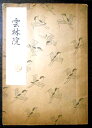 雲林院